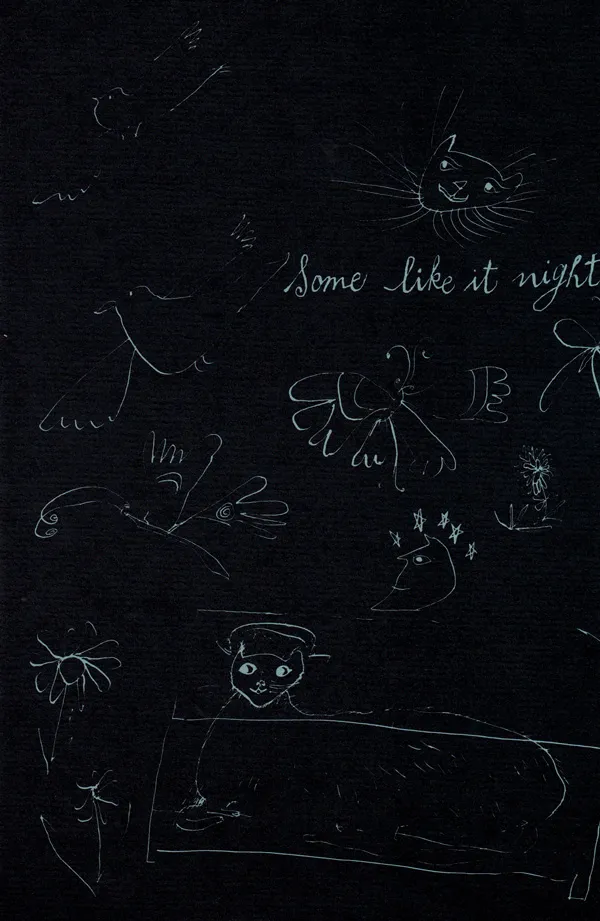 Some like it night